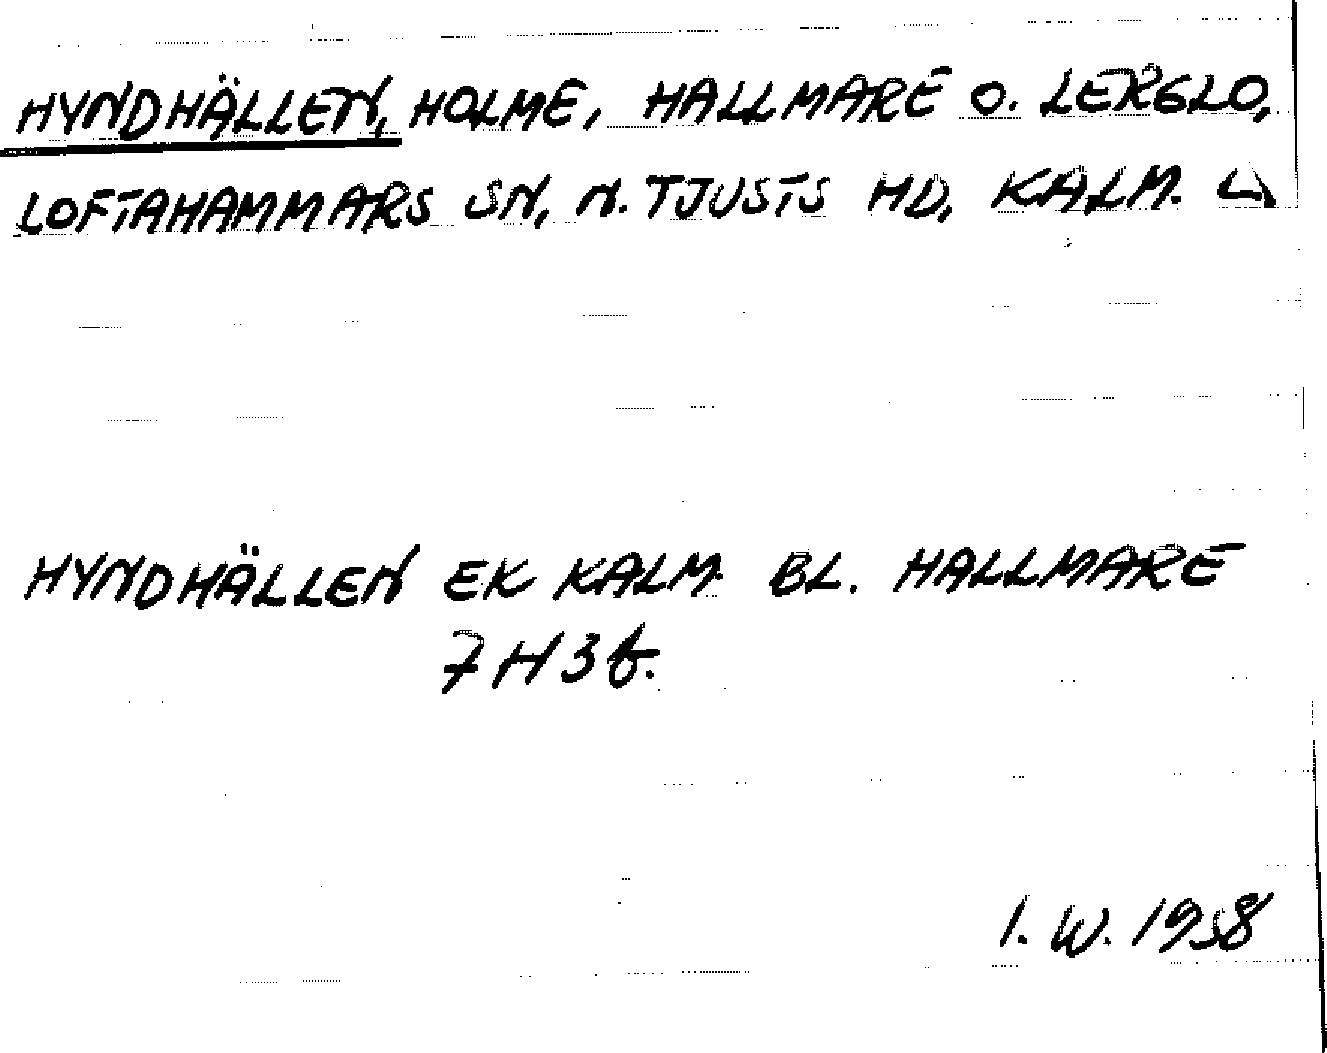 HYNDHÄLLEN, HOLME, HALLMARE O. LERGLO,
LOFTAHAMMARS SN, N. TJUSTS HD, KALM. L.
HYNDHÄLLEN EK KALM. BL. HALLMARE
7H3b.
I. W. 1958